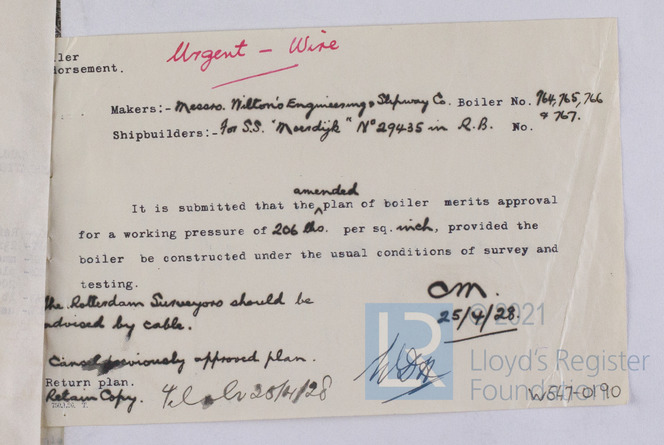 Urgent - Wire
ler
orsement.
Makers:- Messrs. Wilton's Engineering & Slipway Co. Boiler No. 764, 765, 766
& 767.
Shipbuilders:- For S.S. "Moerdijk" No 29435 in R.B. No.
amended
It is submitted that the plan of boiler merits approval
for a working pressure of 206 lbs. per sq. inch, provided the
boiler be constructed under the usual conditions of survey and
testing.
The Rotterdam Surveyors should be
advised by cable.
25/4/28.
Cancel previously approved plan.
Return plan.
Retain Copy.
25/4/28
© 2021
LR
Lloyd's Register
Foundation
W547-0190